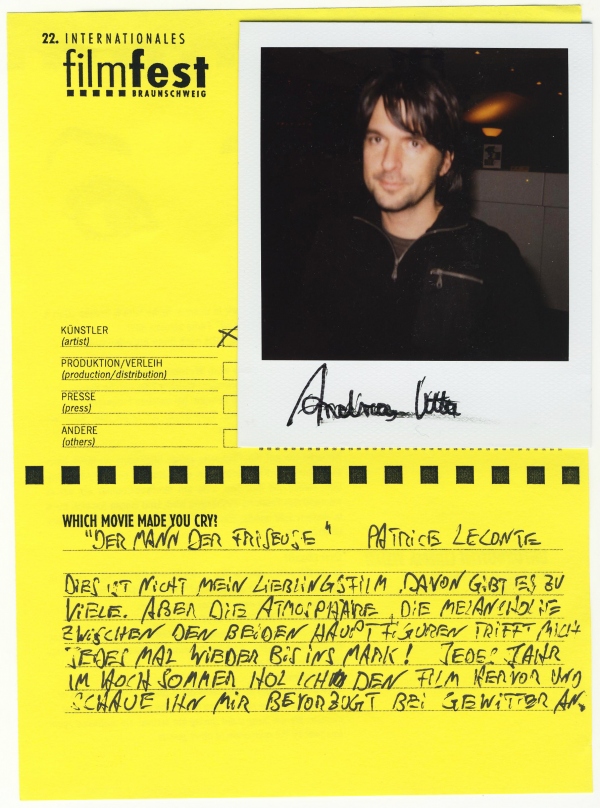 22. INTERNATIONALES
filmfest
BRAUNSCHWEIG
KÜNSTLER
(artist)
PRODUKTION/VERLEIH
(production/distribution)
PRESSE
(press)
ANDERE
(others)
WHICH MOVIE MADE YOU CRY?
"DER MANN DER FRISEUSE" PATRICE LECONTE
DIES IST NICHT MEIN LIEBLINGSFILM, DAVON GIBT ES ZU
VIELE. ABER DIE ATMOSPHÄRE, DIE MELANCHOLIE
ZWISCHEN DEN BEIDEN HAUPTFIGUREN TRIFFT MICH
JEDES MAL WIEDER BIS INS MARK! JEDES JAHR
IM HOCHSOMMER HOL ICH DEN FILM HERVOR UND
SCHAUE IHN MIR BEVORZUGT BEI GEWITTER AN.